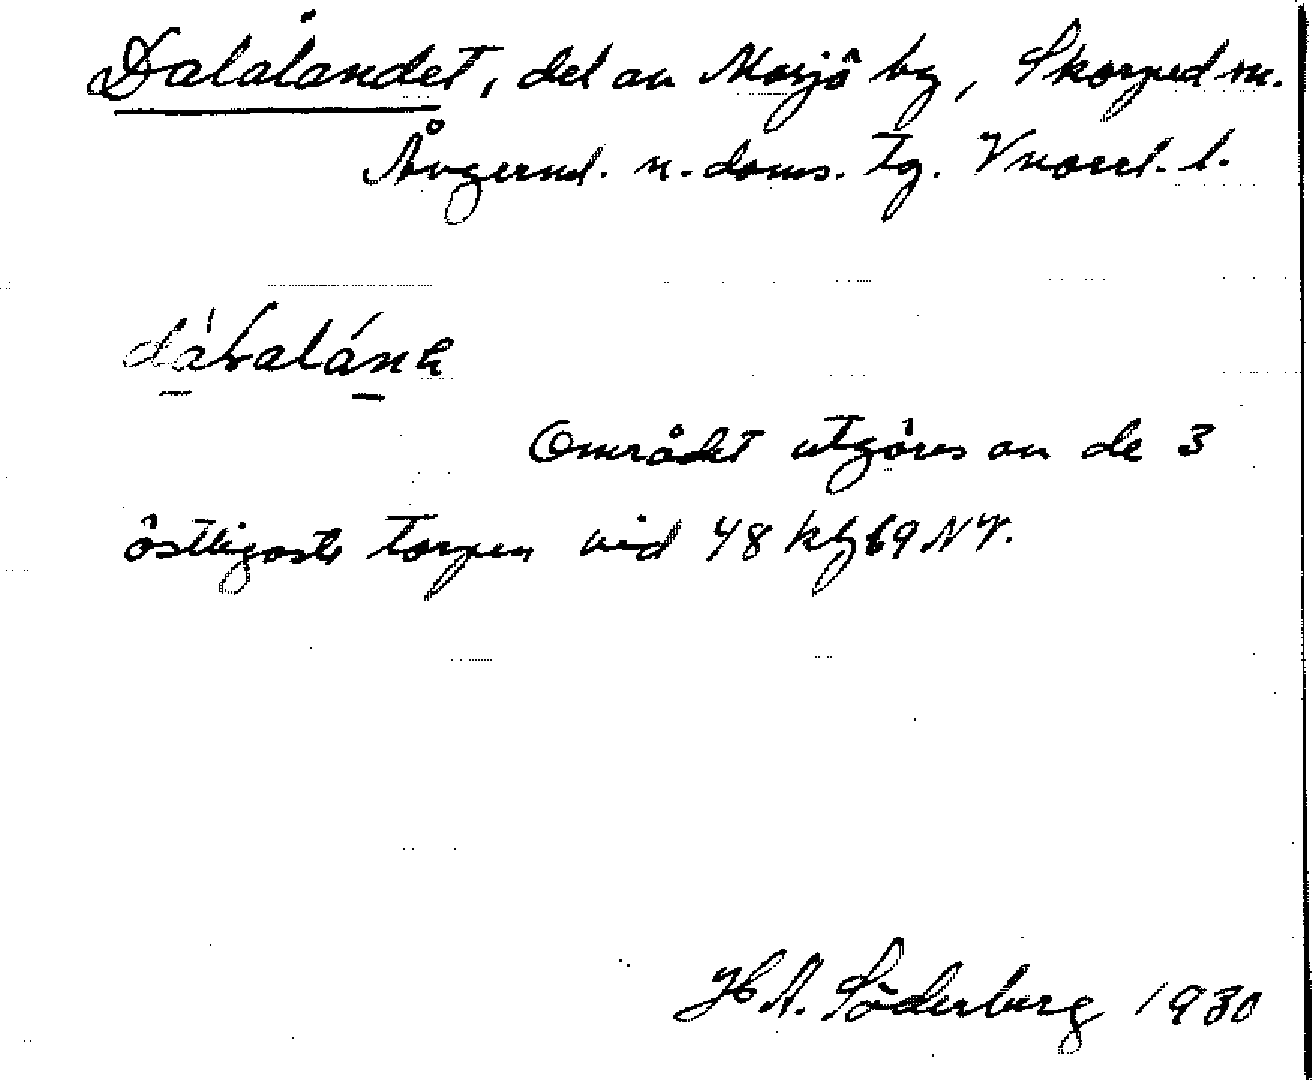 Dalalandet, del av Mosjö by, Skorped sn.
Ångerml. n. doms. tg. Vnorrl. l.
östligaste torpen vid 48 kbf 69 NV.
Området utgöres av de 3
H A. Söderberg 1930